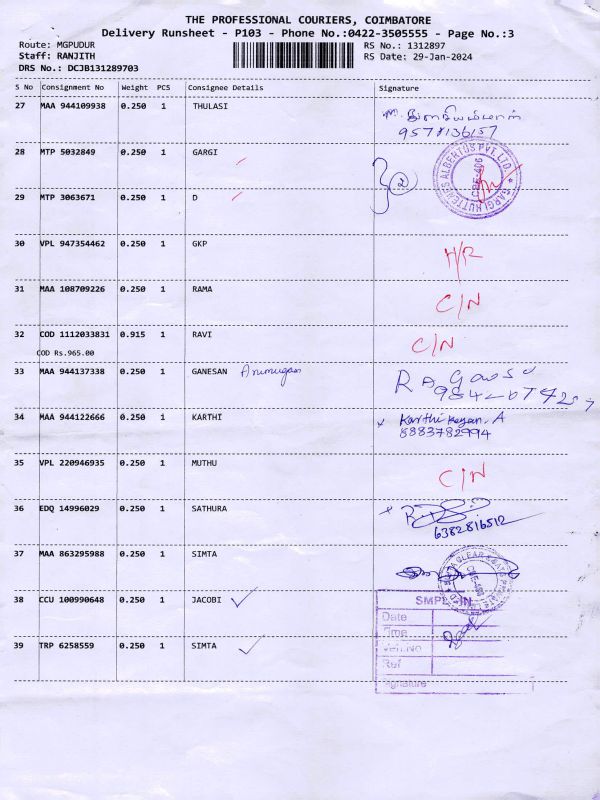 THE PROFESSIONAL COURIERS, COIMBATORE
Delivery Runsheet - P103 - Phone No.:0422-3505555 - Page No.:3
Route: MGPUDUR
RS No.: 1312897
Staff: RANJITH
RS Date: 29-Jan-2024
DRS No.: DCJB131289703
S No Consignment No Weight PCS Consignee Details Signature
27 MAA 944109938 0.250 1 THULASI
28 MTP 5032849 0.250 1 GARGI
29 MTP 3063671 0.250 1 D
2
GARGI HUTTENES ALBERTUS PVT. LTD.
30 VPL 947354462 0.250 1 GKP H/R
31 MAA 108709226 0.250 1 RAMA C/N
32 COD 1112033831 0.915 1 RAVI C/N
COD Rs.965.00
33 MAA 944137338 0.250 1 GANESAN Arumugam
34 MAA 944122666 0.250 1 KARTHI x Karthikeyan. A
8883782994
35 VPL 220946935 0.250 1 MUTHU C/N
36 EDQ 14996029 0.250 1 SATHURA x
6382816512
37 MAA 863295988 0.250 1 SIMTA
38 CCU 100990648 0.250 1 JACOBI ✓
39 TRP 6258559 0.250 1 SIMTA ✓
Date
Time
Veh.No
Ref
Signature